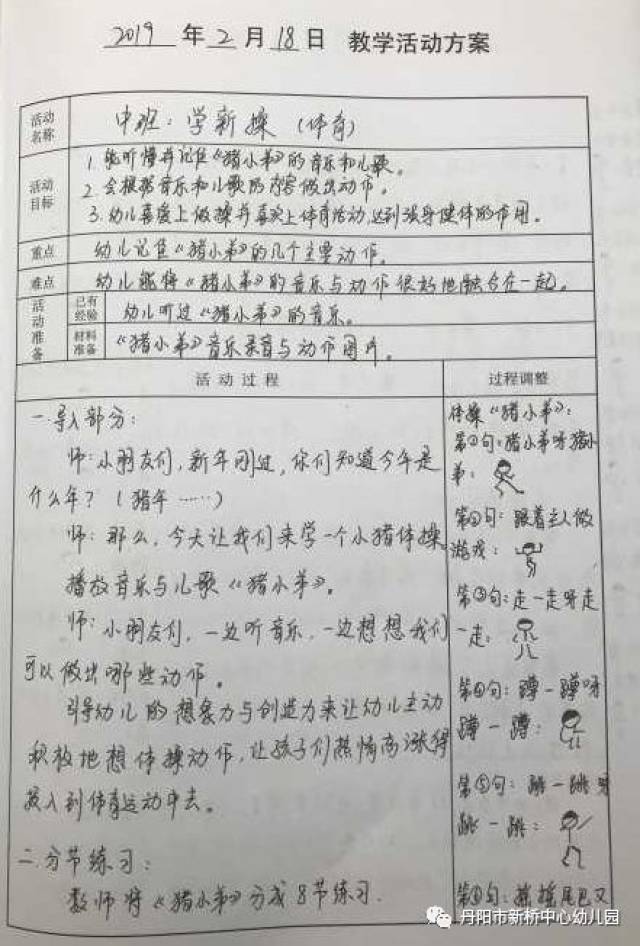 2019 年 2 月 18 日 教学活动方案
活动名称 中班：学新操（体育）
活动目标 1. 能听懂并记住《猪小弟》的音乐和儿歌。
2. 会根据音乐和儿歌的内容做出动作。
3. 幼儿喜爱上做操并喜欢上体育活动，达到强身健体的作用。
重点 幼儿记住《猪小弟》的几个主要动作。
难点 幼儿能将《猪小弟》的音乐与动作很好地融合在一起。
活动准备 已有经验 幼儿听过《猪小弟》的音乐。
材料准备 《猪小弟》音乐录音与动作图片。
活动过程
一.导入部分：
师：小朋友们，新年刚过，你们知道今年是
什么年？（猪年……）
师：那么，今天让我们来学一个小猪体操
播放音乐与儿歌《猪小弟》。
师：小朋友们，一边听音乐，一边想想我们
可以做出哪些动作。
引导幼儿的想象力与创造力来让幼儿主动
积极地想体操动作，让孩子们热情高涨得
投入到体育运动中去。
二.分节练习：
教师将《猪小弟》分成8节练习.
过程调整
体操《猪小弟》：
第①句：猪小弟呀猪小
弟：
第②句：跟着主人做
游戏：
第③句：走一走呀走
一走：
第④句：蹲一蹲呀
蹲一蹲：
第⑤句：跳一跳呀
跳一跳：
第⑥句：摇摇尾巴又
丹阳市新桥中心幼儿园